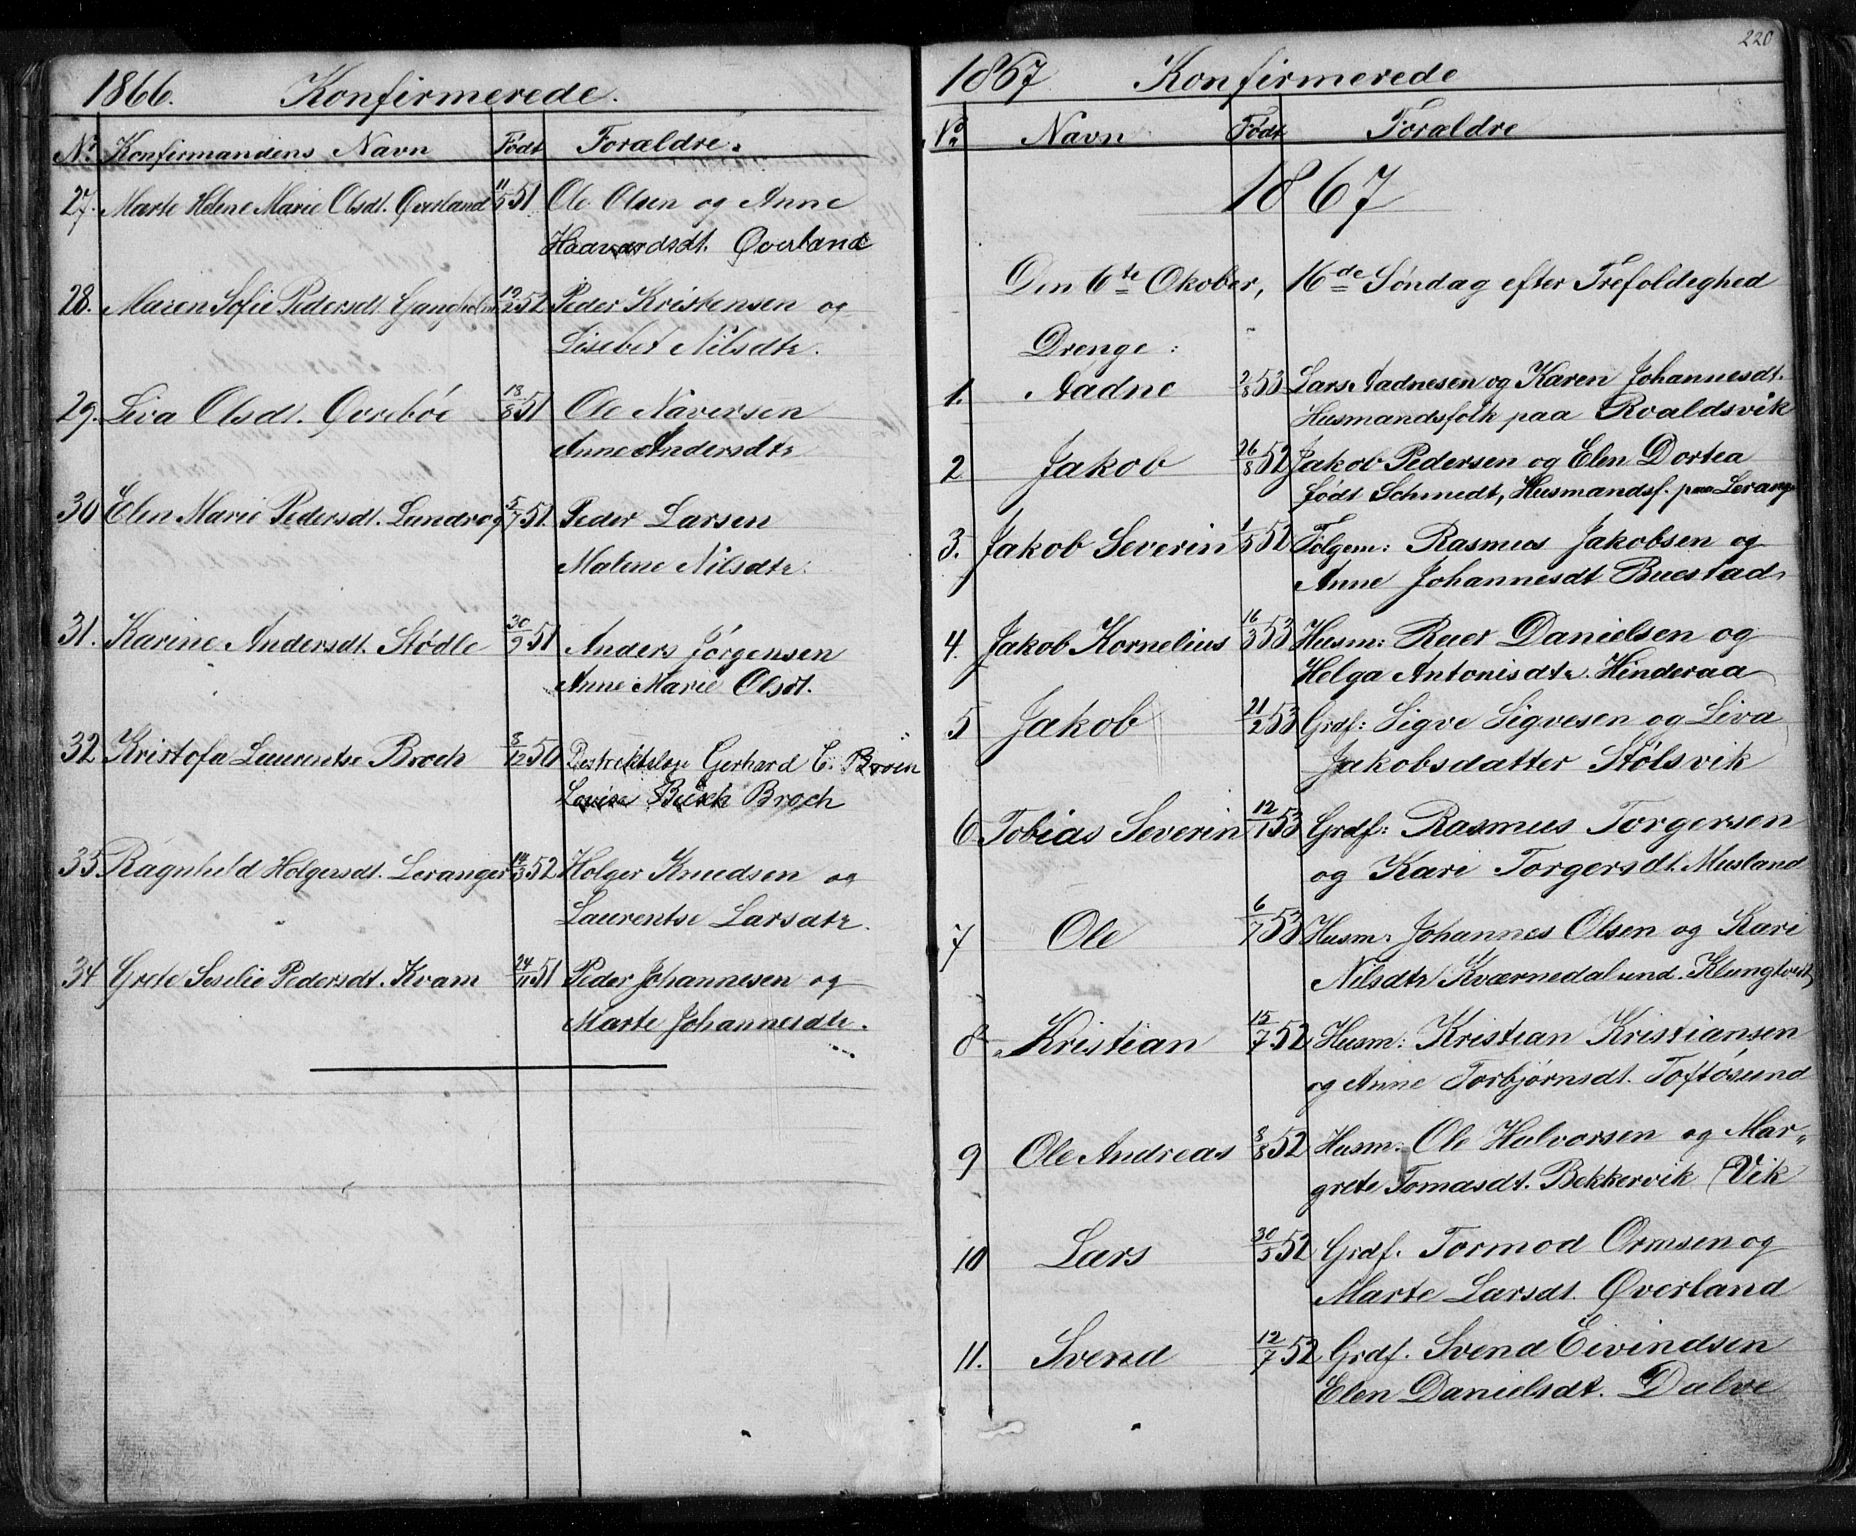 1866. Konfirmerede.
No. Konfirmandens Navn Født Forældre.
27. Marte Helene Marie Olsdt. Qverland 11/5 51 Ole Olsen og Anne
Haavardsdt. Qverland
28. Maren Sofie Pedersdt. 12/2 52 Peder Kristensen og
Lisebet Nilsdtr.
29. Liva Olsdt. Qvrebøe 18/8 51 Ole Naversen
Anne Andersdtr
30 Elen Marie Pedersdt. Lundrog 5/7 51 Peder Larsen
Malene Nilsdtr.
31. Karine Andersdt. Stødle 30/9 51 Anders Jørgensen
Anne Marie Olsdt.
32 Kristofa Laurentse Broch 8/12 50 Gerhard C. Broch
Louise Broch
33 Ragnhild Holgersdt. Leranger 14/3 52 Holger Knudsen og
Laurentse Larsdtr.
34 Grete Seselie Pedersdt. Kvam 24/11 51 Peder Johannesen og
Marte Johannesdtr.
220
1867 Konfirmerede
No. Navn Født Forældre
1867
Den 6te Okober, 16de Søndag efter Trefoldeghed
Drenge:
1. Aadne 2/8 53 Lars Aadnesen og Karen Johannesdt.
Husmandsfolk paa Roaldsvik
2 Jakob 26/8 52 Jakob Pedersen og Elen Dortea
født Schmedt, Husmandsf. paa Lerang
3. Jakob Severin 1/5 52 Folgem: Rasmus Jakobsen og
Anne Johannesdt Buestad
4. Jakob Kornelius 16/3 53 Husm: Reier Danielsen og
Helga Antonisdtr. Hinderaa
5 Jakob 21/2 53 Grdf: Sigve Sigvesen og Liva
Jakobsdatter Stølsvik
6 Tobias Severin 12/1 53 Grdf: Rasmus Torgersen
og Kari Torgersdt. Musland
7 Ole 6/7 53 Husm: Johannes Olsen og Kari
Nilsdtr Kværnedal und. Klungtveit
8 Kristian 15/7 52 Husm: Kristian Kristiansen
og Anne Torbjørnsdt. Toftøsund
9 Ole Andreas 8/8 52 Husm: Ole Halvorsen og Mar-
grete Tomasdt. Bekkervik (Vik
10 Lars 30/5 52 Grdf. Tormod Ormsen og
Marte Larsdt. Qverland
11. Svend 12/7 52 Grdf. Svend Eivindsen
Elen Danielsdt. Dalve